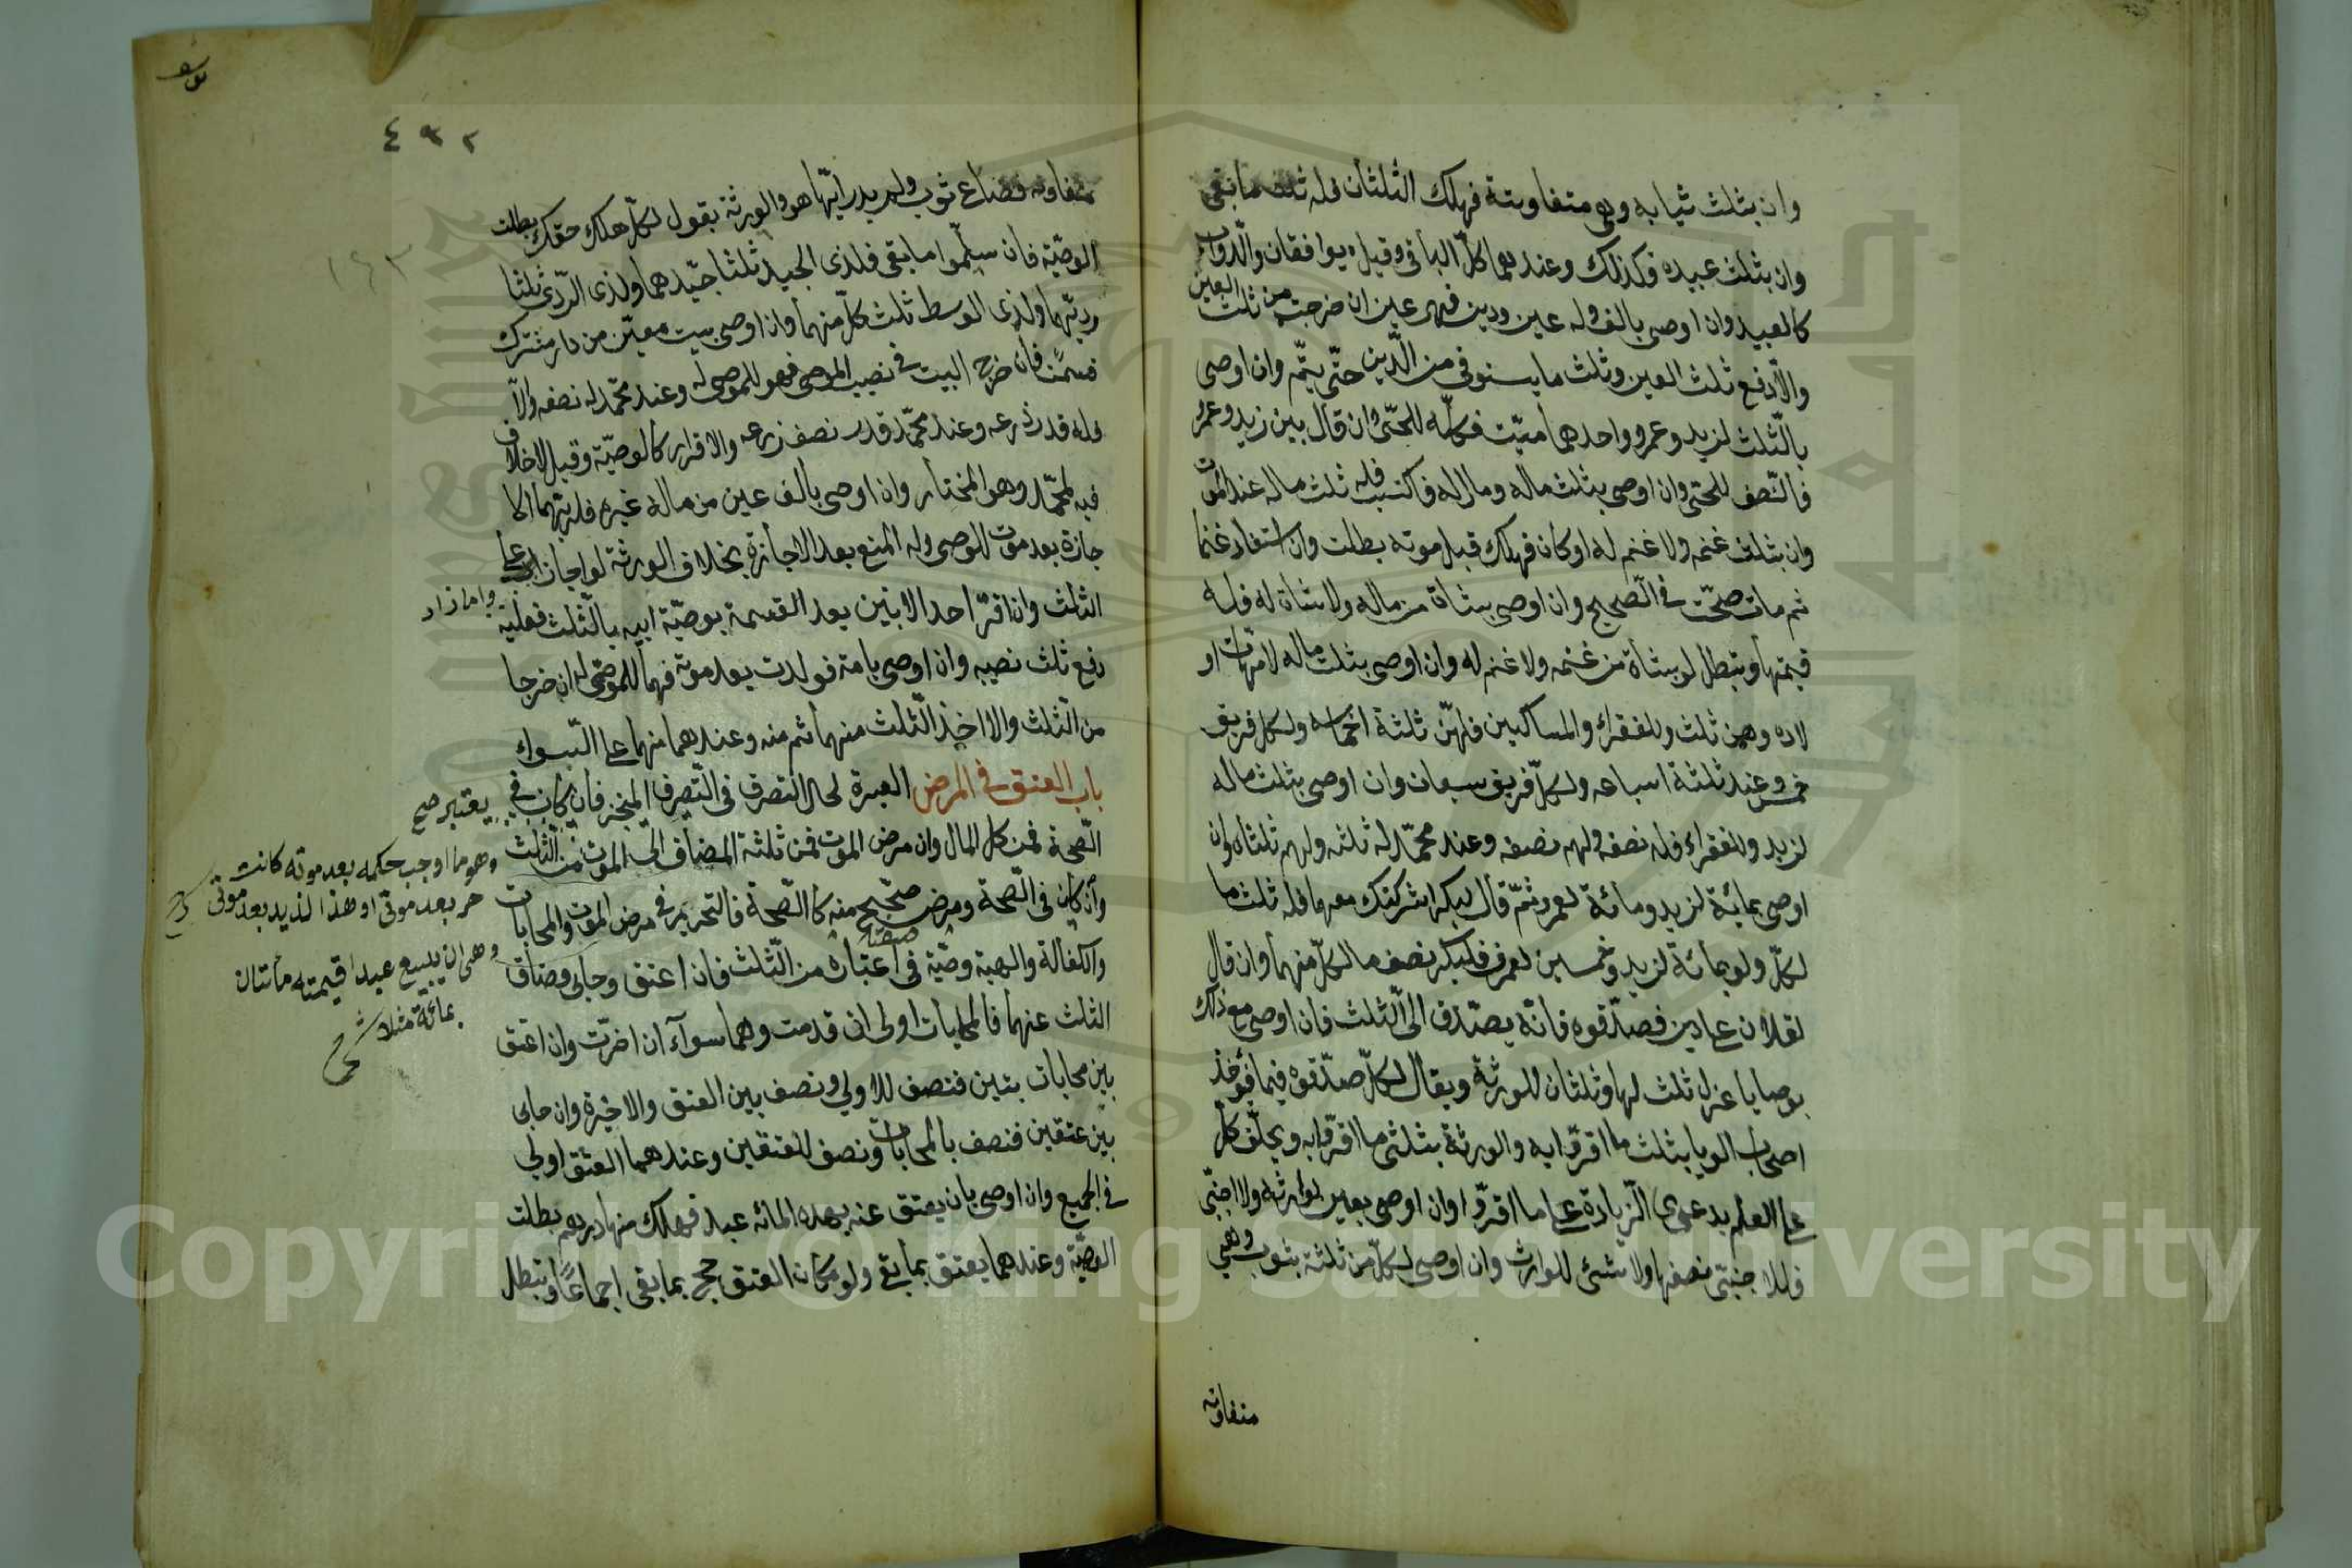 وان بثلث ثيابه وهي متفاوتة فهلك الثلثان فله ثلث ما بقي
وان بثلث عبيده فكذلك وعندهما كل الباقي وقيل يوافقان والدواب
كالعبيد وان اوصى بالف وله عين ودين فهي عين ان خرجت من ثلث العين
والا دفع ثلث العين وثلث ما يستوفى من الدين حتى يتم وان اوصى
بالثلث لزيد وعمرو واحدهما ميت فكله للحي وان قال بين زيد وعمرو
فالنصف للحي وان اوصى بثلث ماله ومال له فاكتسب فله ثلث ماله عند الموت
وان بثلث غنمه ولا غنم له او كان فهلك قبل موته بطلت وان استفاد غنما
ثم مات صحت في الصحيح وان اوصى بشاة من ماله ولا شاة له فله
قيمتها وتبطل لو بشاة من غنمه ولا غنم له وان اوصى بثلث ماله لامهات او
لاده وهن ثلث وللفقراء والمساكين فلهن ثلثة اخماسه ولكل فريق
خمس وعند ثلثة اسباعه ولكل فريق سبعان وان اوصى بثلث ماله
لزيد وللفقراء فله نصفه ولهم نصفه وعند محمد له ثلثه ولهم ثلثاه وان
اوصى بمائة لزيد ومائة لعمرو ثم قال لبكر اشركتك معهما فله ثلث ما
لكل ولو بمائة لزيد وخمسين لعمرو فلبكر نصف ما لكل منهما وان قال
لفلان على دين فصدقوه فانه يصدق الى الثلث فان اوصى مع ذلك
بوصايا عزل ثلث لها وثلثان للورثة ويقال لكل صدقوه فيما فيؤخذ
اصحاب الوبا بثلث ما اقروا به والورثة بثلثي ما اقروا به ويحلف كل
على العلم بدعوى الزيادة على ما اقروا وان اوصى بعين لوارثه ولاجنبي
فللاجنبي نصفها ولا شئ للوارث وان اوصى لكل من ثلثة بثوب وهي
متفاوته
٤٩٢
١٤٣
متفاوته فضاع ثوب ولم يدر ايها هو والورثة يقول لكل هلك حقك بطلت
الوصية فان سلموا ما بقي فلذي الجيد ثلثا جيدهما ولذي الردئ ثلثا
رديهما ولذي الوسط ثلث كل منهما وان اوصى ببيت معين من دار مشترك
قسمت فان خرج البيت في نصيب الموصى فهو للموصى له وعند محمد له نصفه والا
فله قدر ذرعه وعند محمد قدر نصف ذرعه والاقرار كالوصية وقيل لا خلاف
فيه لمحمد وهو المختار وان اوصى بالف عين من مال غيره فلربهما الا
جازة بعد موت الموصى وله المنع بعد الاجازة بخلاف الورثة لو اجازوا ما زاد على
الثلث وان اقر احد الابنين بعد القسمة بوصية ابيه بالثلث فعليه
دفع ثلث نصيبه وان اوصى بامة فولدت بعد موته فهما للموصى له ان خرجا
من الثلث والا اخذ الثلث منها ثم منه وعندهما منهما على السواء
باب العتق في المرض العبرة لحال التصرف في التصرف المنجز فان كان في
الصحة فمن كل المال وان مرض الموت فمن ثلثه المضاف الى الموت من الثلث
وان كان في الصحة ومرض صح منه كالصحة فالتحرير في مرض الموت والمحابات
والكفالة والهبة وصية في اعتباره من الثلث فان اعتق وحابى وضاق
الثلث عنهما فالمحابات اولى ان قدمت وهما سواء ان اخرت وان اعتق
بين محاباتين فنصف للاولى ونصف بين العتق والاخيرة وان حابى
بين عتقين فنصف بالمحابات ونصف للعتقين وعندهما العتق اولى
في الجميع وان اوصى بان يعتق عنه بهذه المائه عبد فهلك منها درهم بطلت
الوصية وعندهما يعتق بما بقي ولو مكان العتق حج بما بقي اجماعا وتبطل
يعتبر صح
وهو ما اوجب حكمه بعد موته كانت
حر بعد موتي او هذا لزيد بعد موتي
وهي ان يبيع عبدا قيمته مأتان
بمائة مثلا